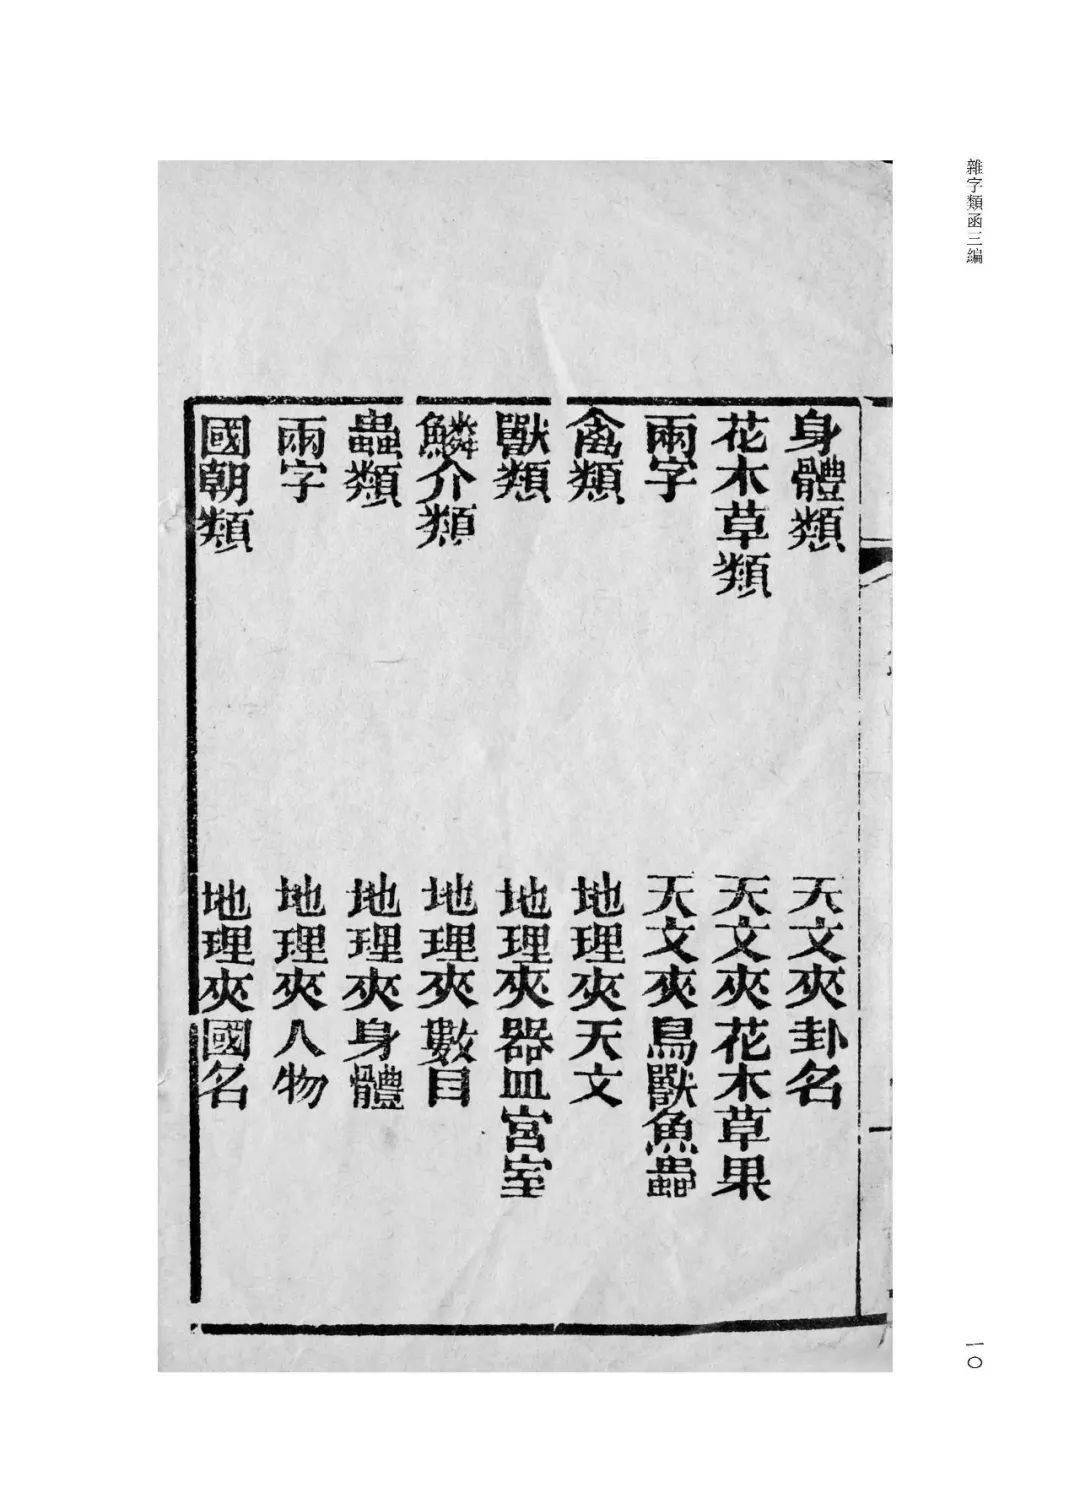 雜字類函三編
身體類　天文夾卦名
花木草類　天文夾花木草果
兩字　天文夾鳥獸魚蟲
禽類　地理夾天文
獸類　地理夾器皿宮室
鱗介類　地理夾數目
蟲類　地理夾身體
兩字　地理夾人物
國朝類　地理夾國名
一〇